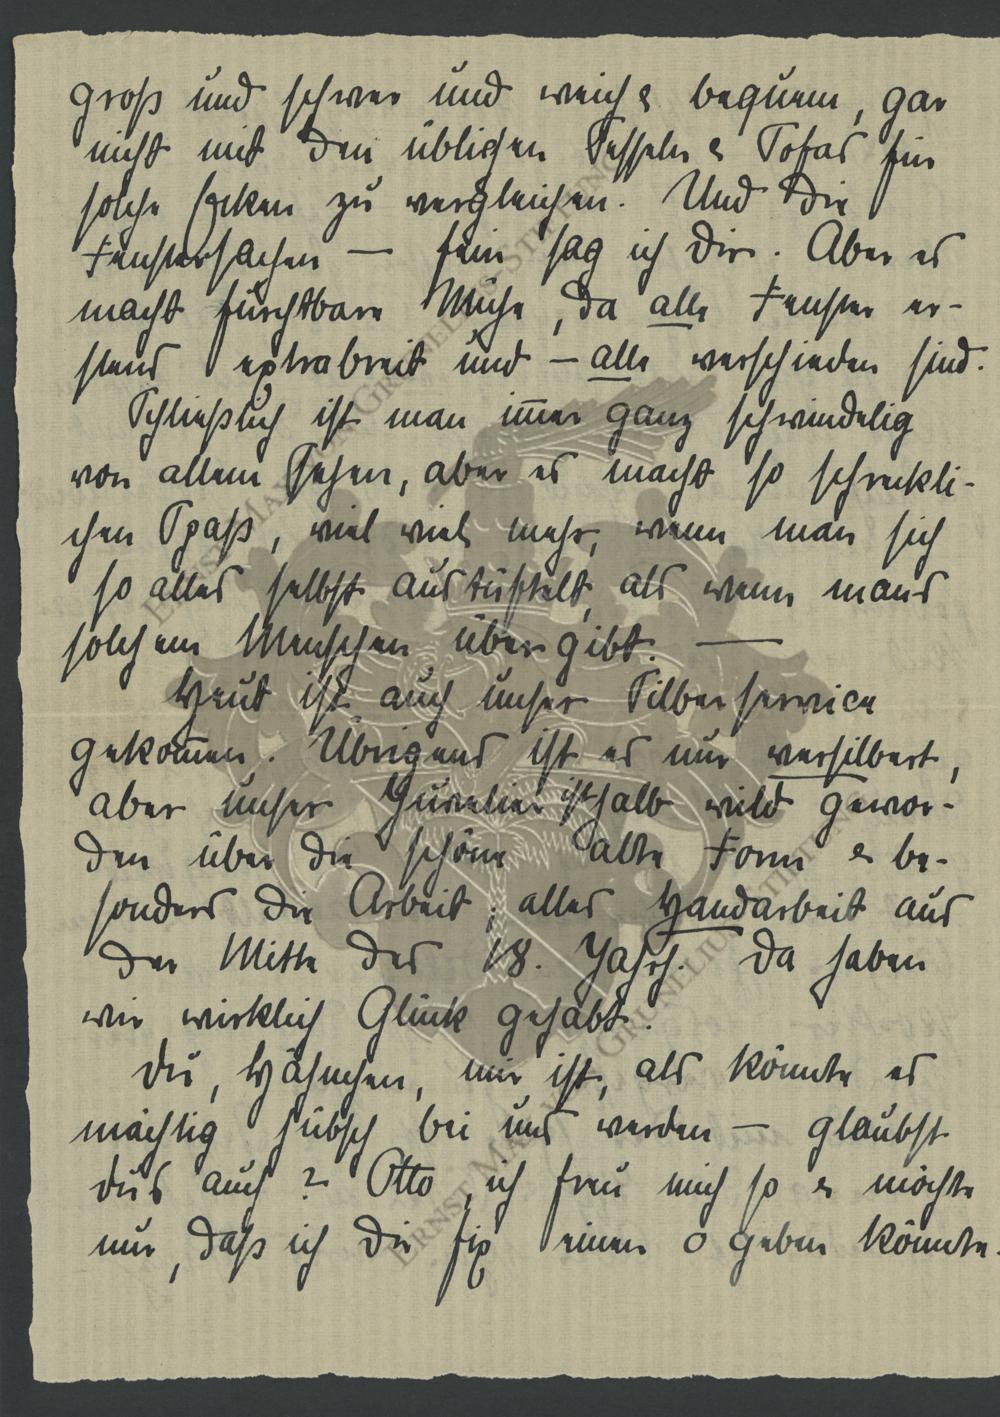 groß und schwer und weich & bequem, gar
nicht mit den üblichen Sesseln & Sofas für
solche Ecken zu vergleichen. Und die
Fenstersachen — fein sag ich dir. Aber es
macht furchtbare Mühe, da alle Fenster er-
stens extrabreit und – alle verschieden sind.
Schließlich ist man im̅er ganz schwindelig
von allem Sehen, aber es macht so schreckli-
chen Spaß, viel viel mehr, wenn man sich
so alles selbst austüftelt, als wenn mans
solchem Menschen übergibt. —
Heut ist auch unser Silberservice
gekom̅en. Übrigens ist es nur versilbert,
aber unser Juwelier ist halb wild gewor-
den über die schöne alte Form & be-
sonders die Arbeit; alles Handarbeit aus
der Mitte des 18. Jahrh. Da haben
wir wirklich Glück gehabt.
Du, Hähnchen, mir ist, als könnte es
mächtig hübsch bei uns werden — glaubst
dus auch? Otto, ich freu mich so & möchte
nur, daß ich dir fix einen o geben könnte.
ERNST MAX GRISNELIUS STIFTUNG